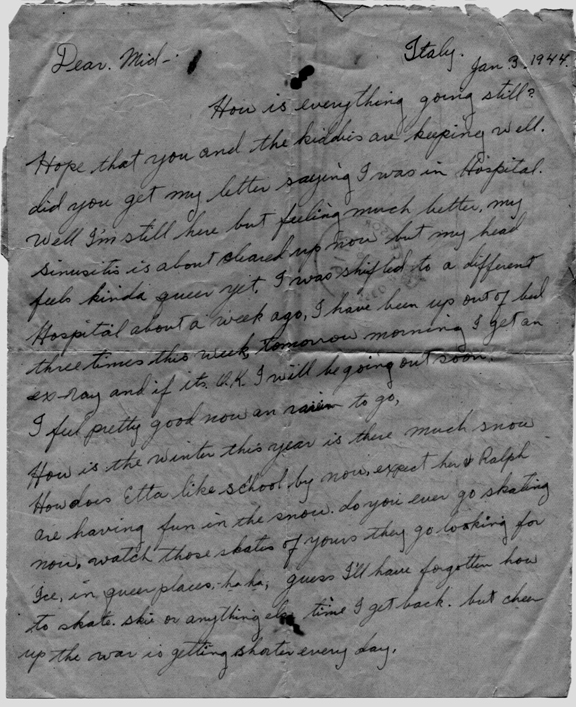 Dear. Mid-
Italy.
Jan 3. 1944.
How is everything going still?
Hope that you and the kiddies are keeping well.
did you get my letter saying I was in Hospital.
Well I'm still here but feeling much better, my
sinusitis is about cleared up now but my head
feels kinda queer yet. I was shifted to a different
Hospital about a week ago, I have been up out of bed
three times this week, tomorrow morning I get an
ex-ray and if its O.K. I will be going out soon.
I feel pretty good now an rarin to go,
How is the winter this year is there much snow
How does Etta like school by now, expect her & Ralph
are having fun in the snow. do you ever go skating
now, watch those skates of yours they go looking for
Ice, in queer places, ha ha, guess I'll have forgotten how
to skate. skie or anything else time I get back. but cheer
up the war is getting shorter every day.